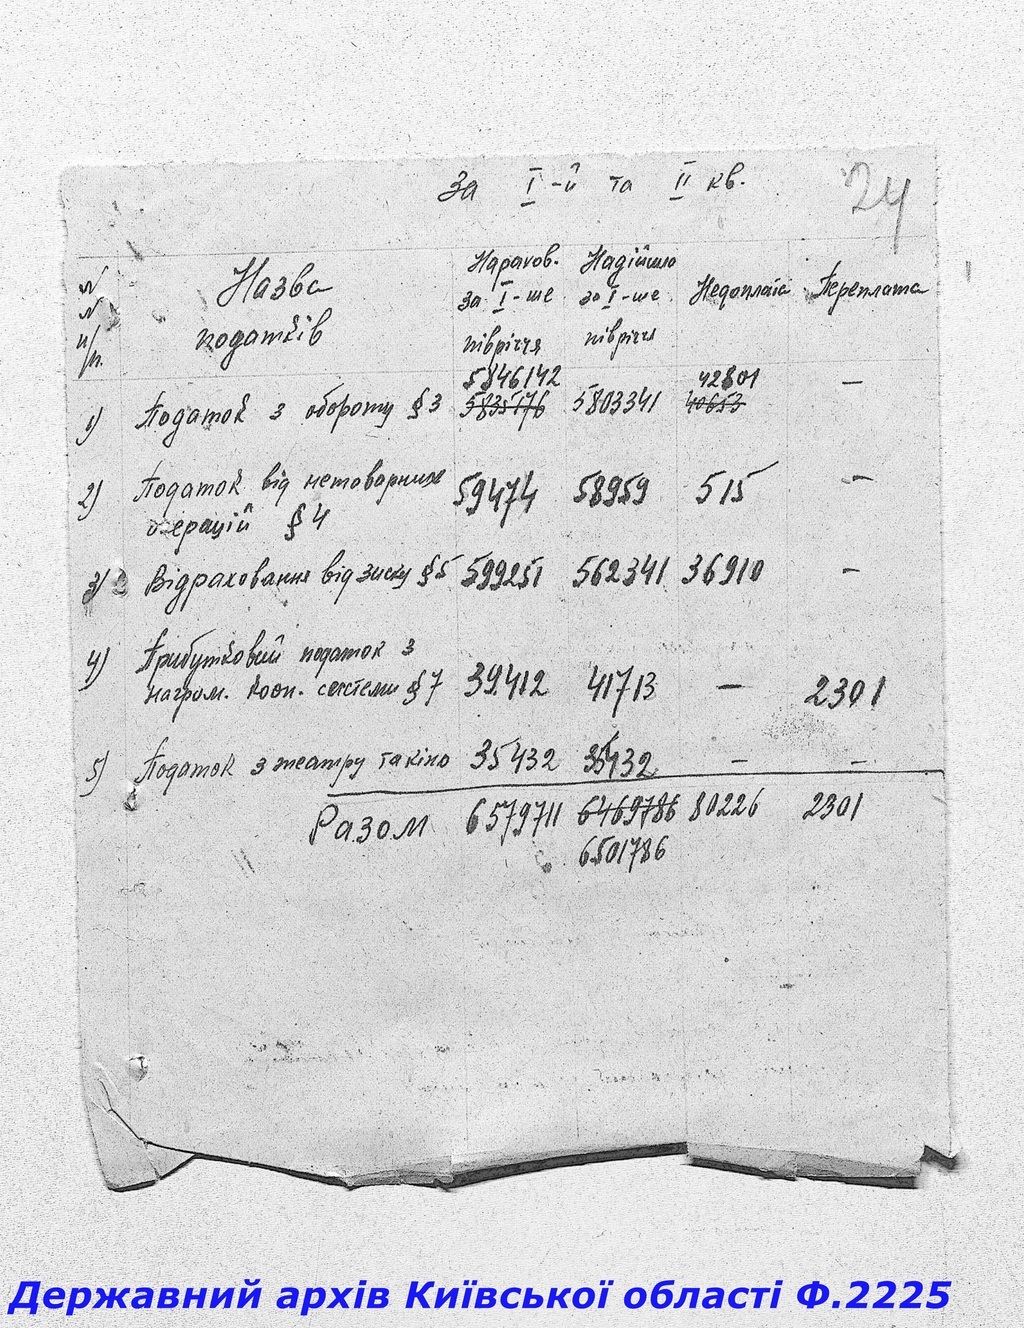 За І-й та ІІ кв.
24
№ № п/п. Назва податків Нарахов. за І-ше півріччя Надійшло за І-ше півріччя Недоплата Переплата
5846142 42801
1) Податок з обороту §3 5835176 5803341 40653 —
2) Податок від нетоварних
операцій §4 59474 58959 515 —
3) Відраховання від зиску §5 599251 562341 36910 —
4) Прибутковий податок з
нагром. кооп. системи §7 39412 41713 — 2301
5) Податок з театру та кіно 35432 35432 — —
Разом 6579711 6469786 80226 2301
6501786
Державний архів Київської області Ф.2225